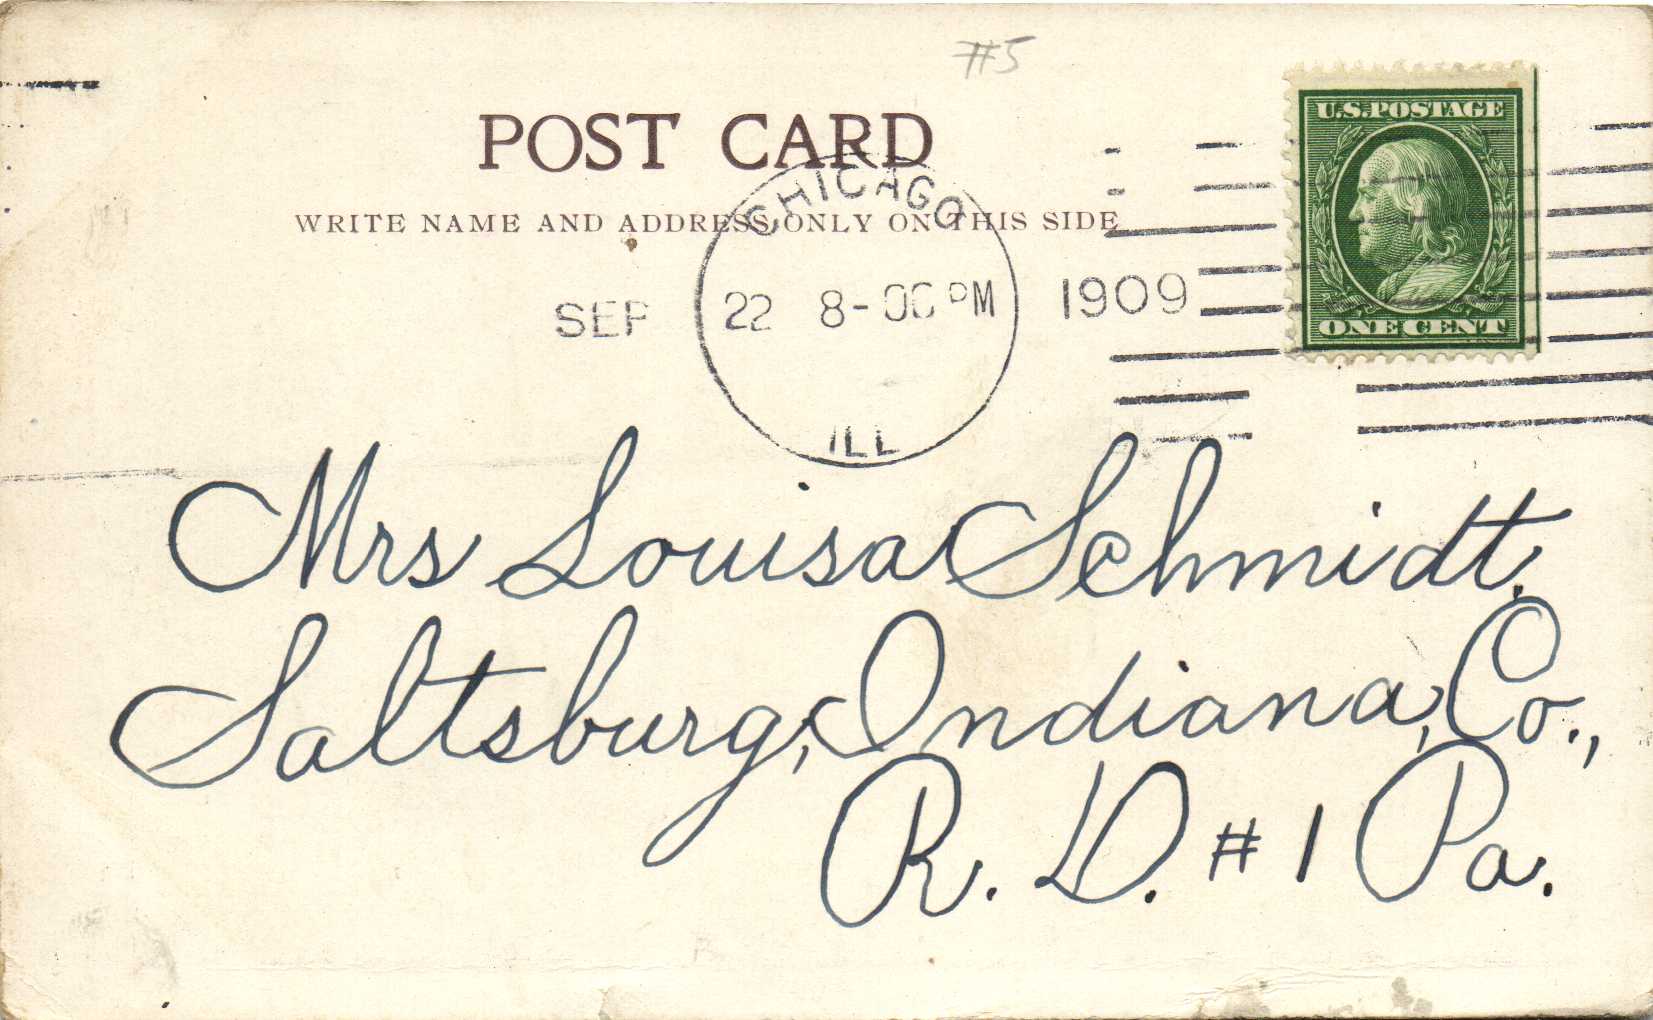 #5
POST CARD
WRITE NAME AND ADDRESS ONLY ON THIS SIDE
U.S. POSTAGE
ONE CENT
CHICAGO
SEP 22 8-00 PM 1909
ILL
Mrs Louisa Schmidt,
Saltsburg, Indiana, Co.,
R. D. #1 Pa.